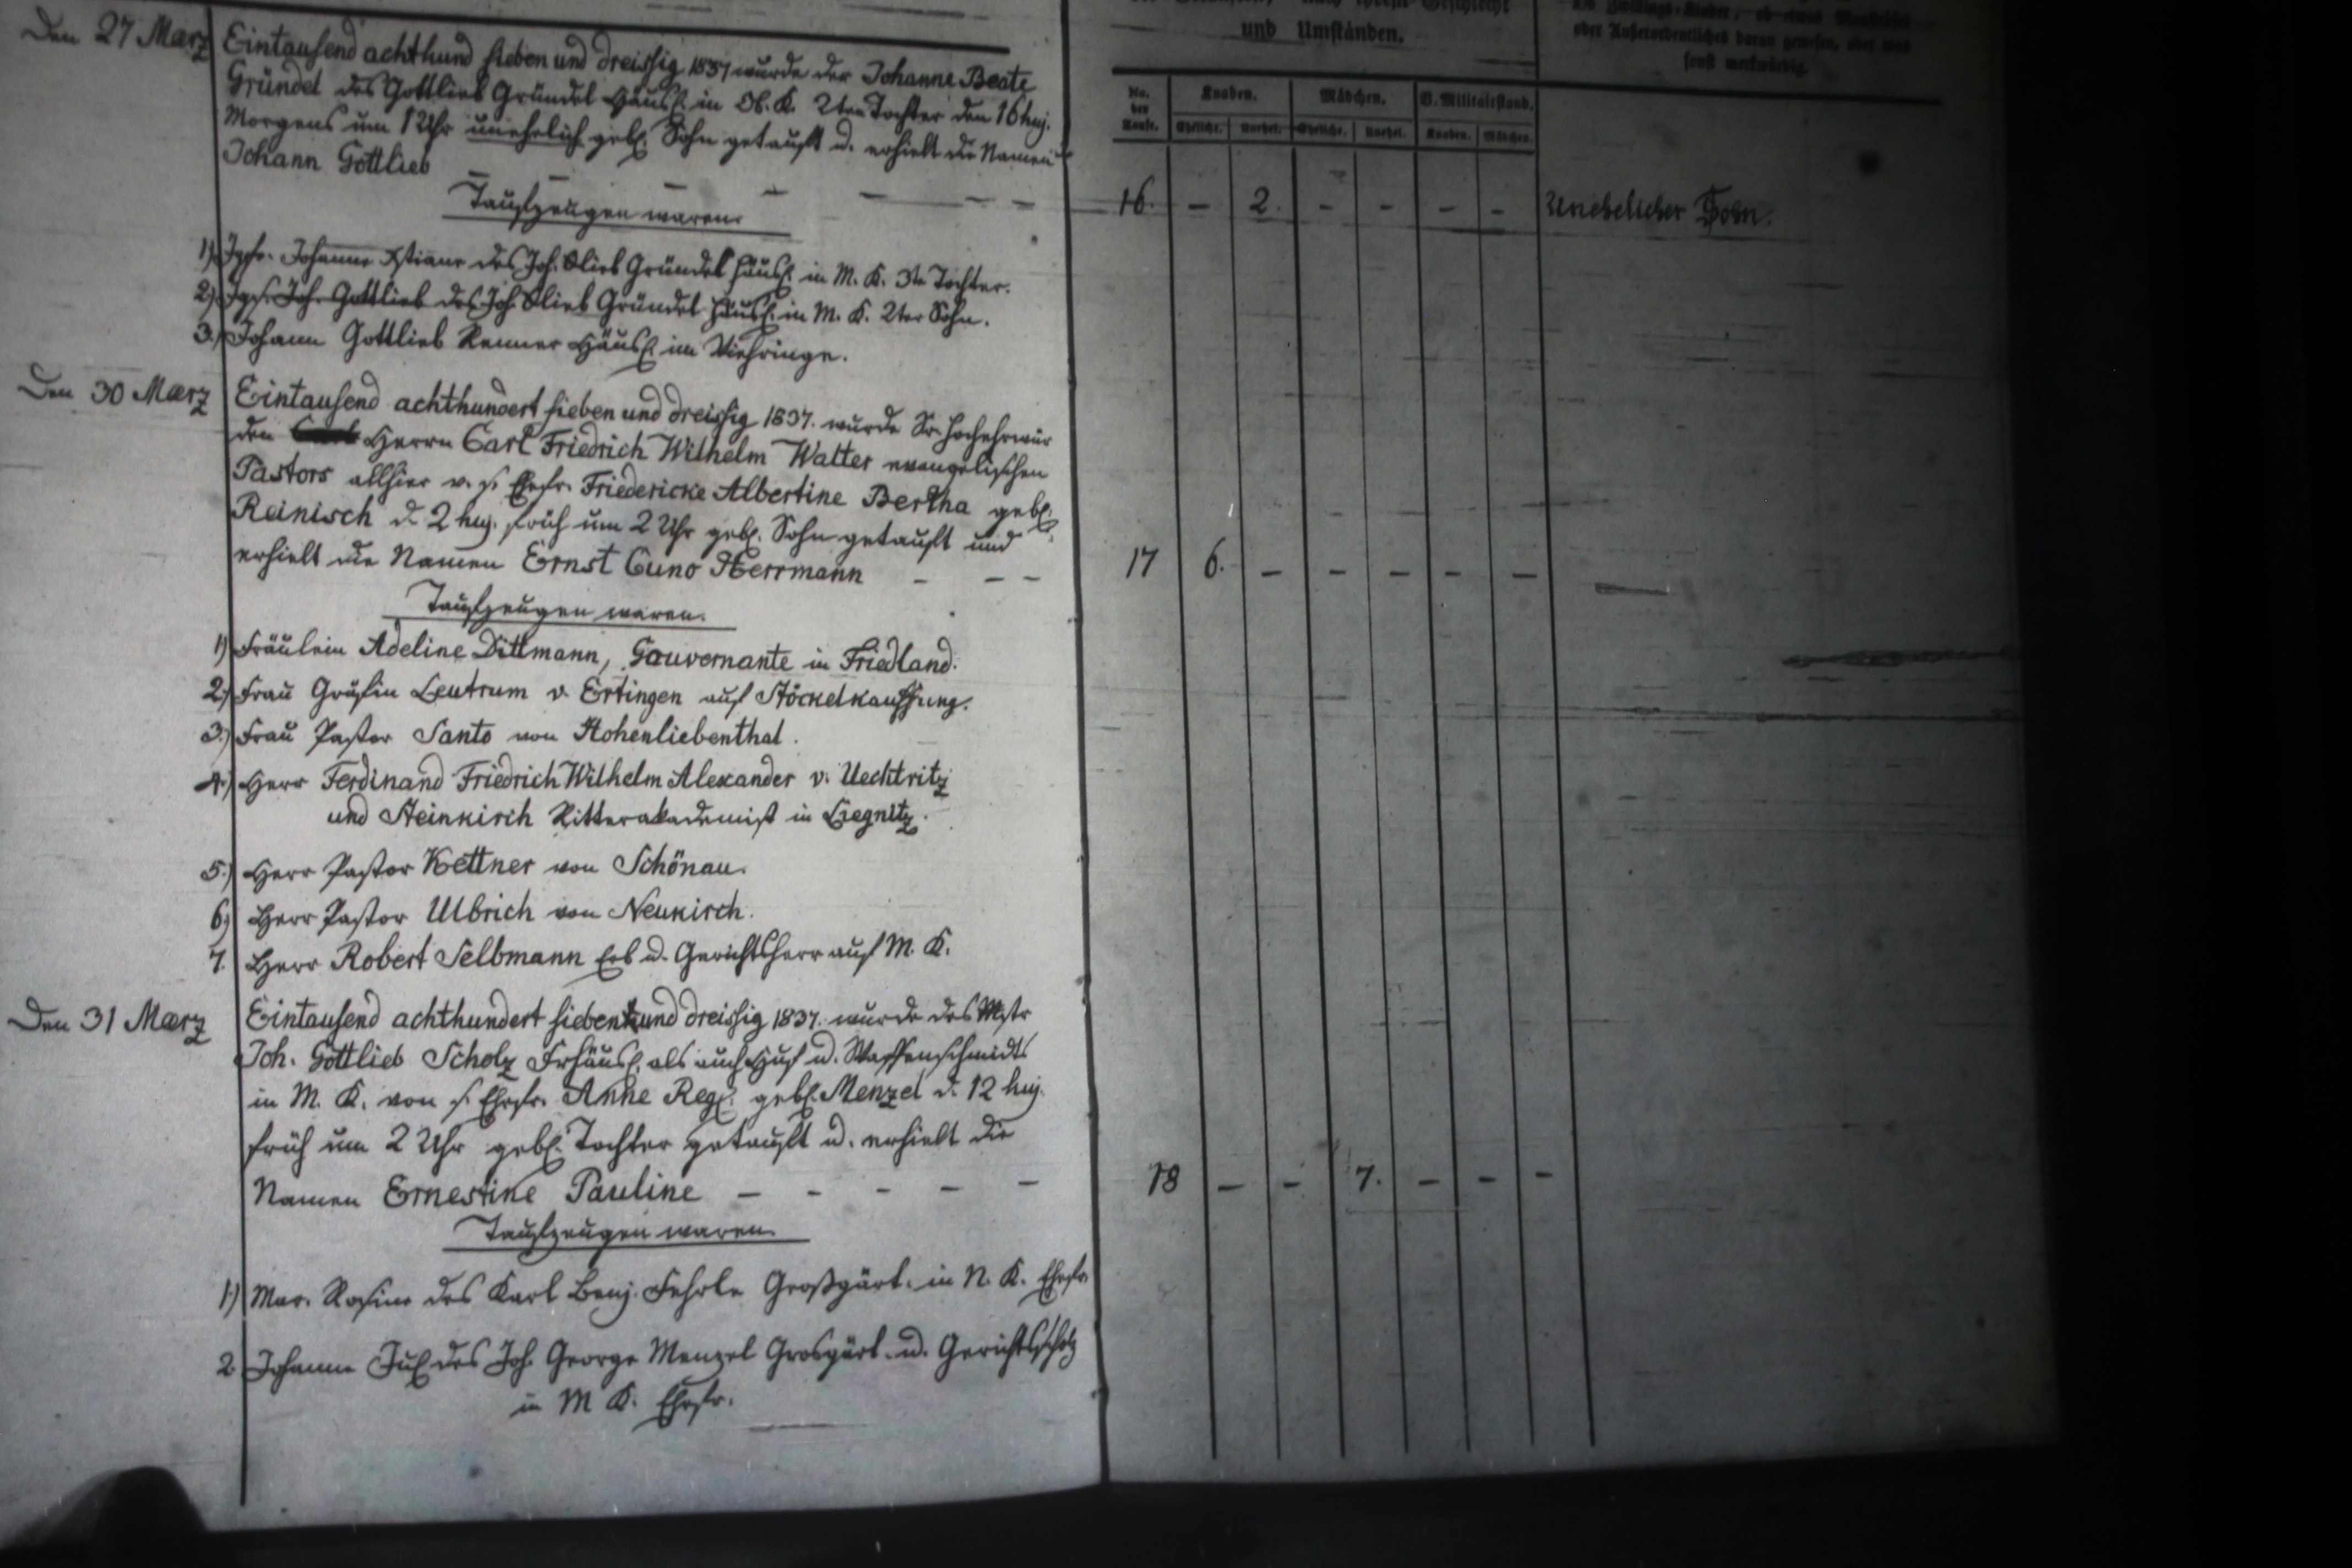 Den 27 Maerz
Eintausend achthund sieben und dreissig 1837 wurde der Johanne Beate
Gründel des Gottlieb Gründel Häusl. in Ob. K. 2ten Tochter den 16 huj.
Morgens um 1 Uhr unehelich geb. Sohn getauft u. erhielt die Namen
Johann Gottlieb
Taufzeugen waren.
1.) Jgfr. Johanne Xstiane des Joh. Glieb Gründel Häusl. in M. K. 3te Tochter.
2.) Jgs. Joh. Gottlieb des Joh Glieb Gründel Häusl. in M. K. 2ter Sohn.
3.) Johann Gottlieb Renner Häusl. im Viehringe.
Den 30 Maerz
Eintausend achthundert sieben und dreissig 1837. wurde Sr. Hochehrwür
den Herrn Carl Friedrich Wilhelm Walter evangelischen
Pastors allhier v. s. Ehefr. Friedericke Albertine Bertha geb.
Reinisch d. 2 huj. früh um 2 Uhr geb. Sohn getauft und
erhielt die Namen Ernst Cuno Herrmann
Taufzeugen waren.
1) Fräulein Adeline Dittmann, Gouvernante in Friedland.
2.) Frau Gräfin Leutrum v. Ertingen auf Stöckelkauffung.
3.) Frau Pastor Santo von Hohenliebenthal.
4.) Herr Ferdinand Friedrich Wilhelm Alexander v. Uechtritz
und Steinkirch Ritterakademist in Liegnitz.
5.) Herr Pastor Kettner von Schönau.
6.) Herr Pastor Ulbrich von Neukirch.
7. Herr Robert Selbmann Erb u. Gerichtsherr auf M. K.
Den 31 Maerz
Eintausend achthundert sieben und dreissig 1837. wurde des Mstr
Joh. Gottlieb Scholz Frhäusl. als auch Huf u. Waffenschmidts
in M. K. von s. Ehefr. Anne Reg. geb. Menzel d. 12 huj.
früh um 2 Uhr geb. Tochter getauft u. erhielt die
Namen Ernestine Pauline
Taufzeugen waren.
1.) Mar. Rosine des Karl Benj. Fehrle Großgärt. in N. K. Ehefr.
2 Johanne Jul. des Joh. George Menzel Grosgärt. u. Gerichtsscholz
in M K. Ehefr.
und Umständen.
sonst merkwürdig.
No. der Taufe.
Knaben.
Mädchen.
V. Militairstand.
Eheliche. Unehel. Eheliche. Unehel. Knaben. Mädchen.
16. – 2. – – – – Unehelicher Sohn.
17 6. – – – – –
18 – – 7. – – –